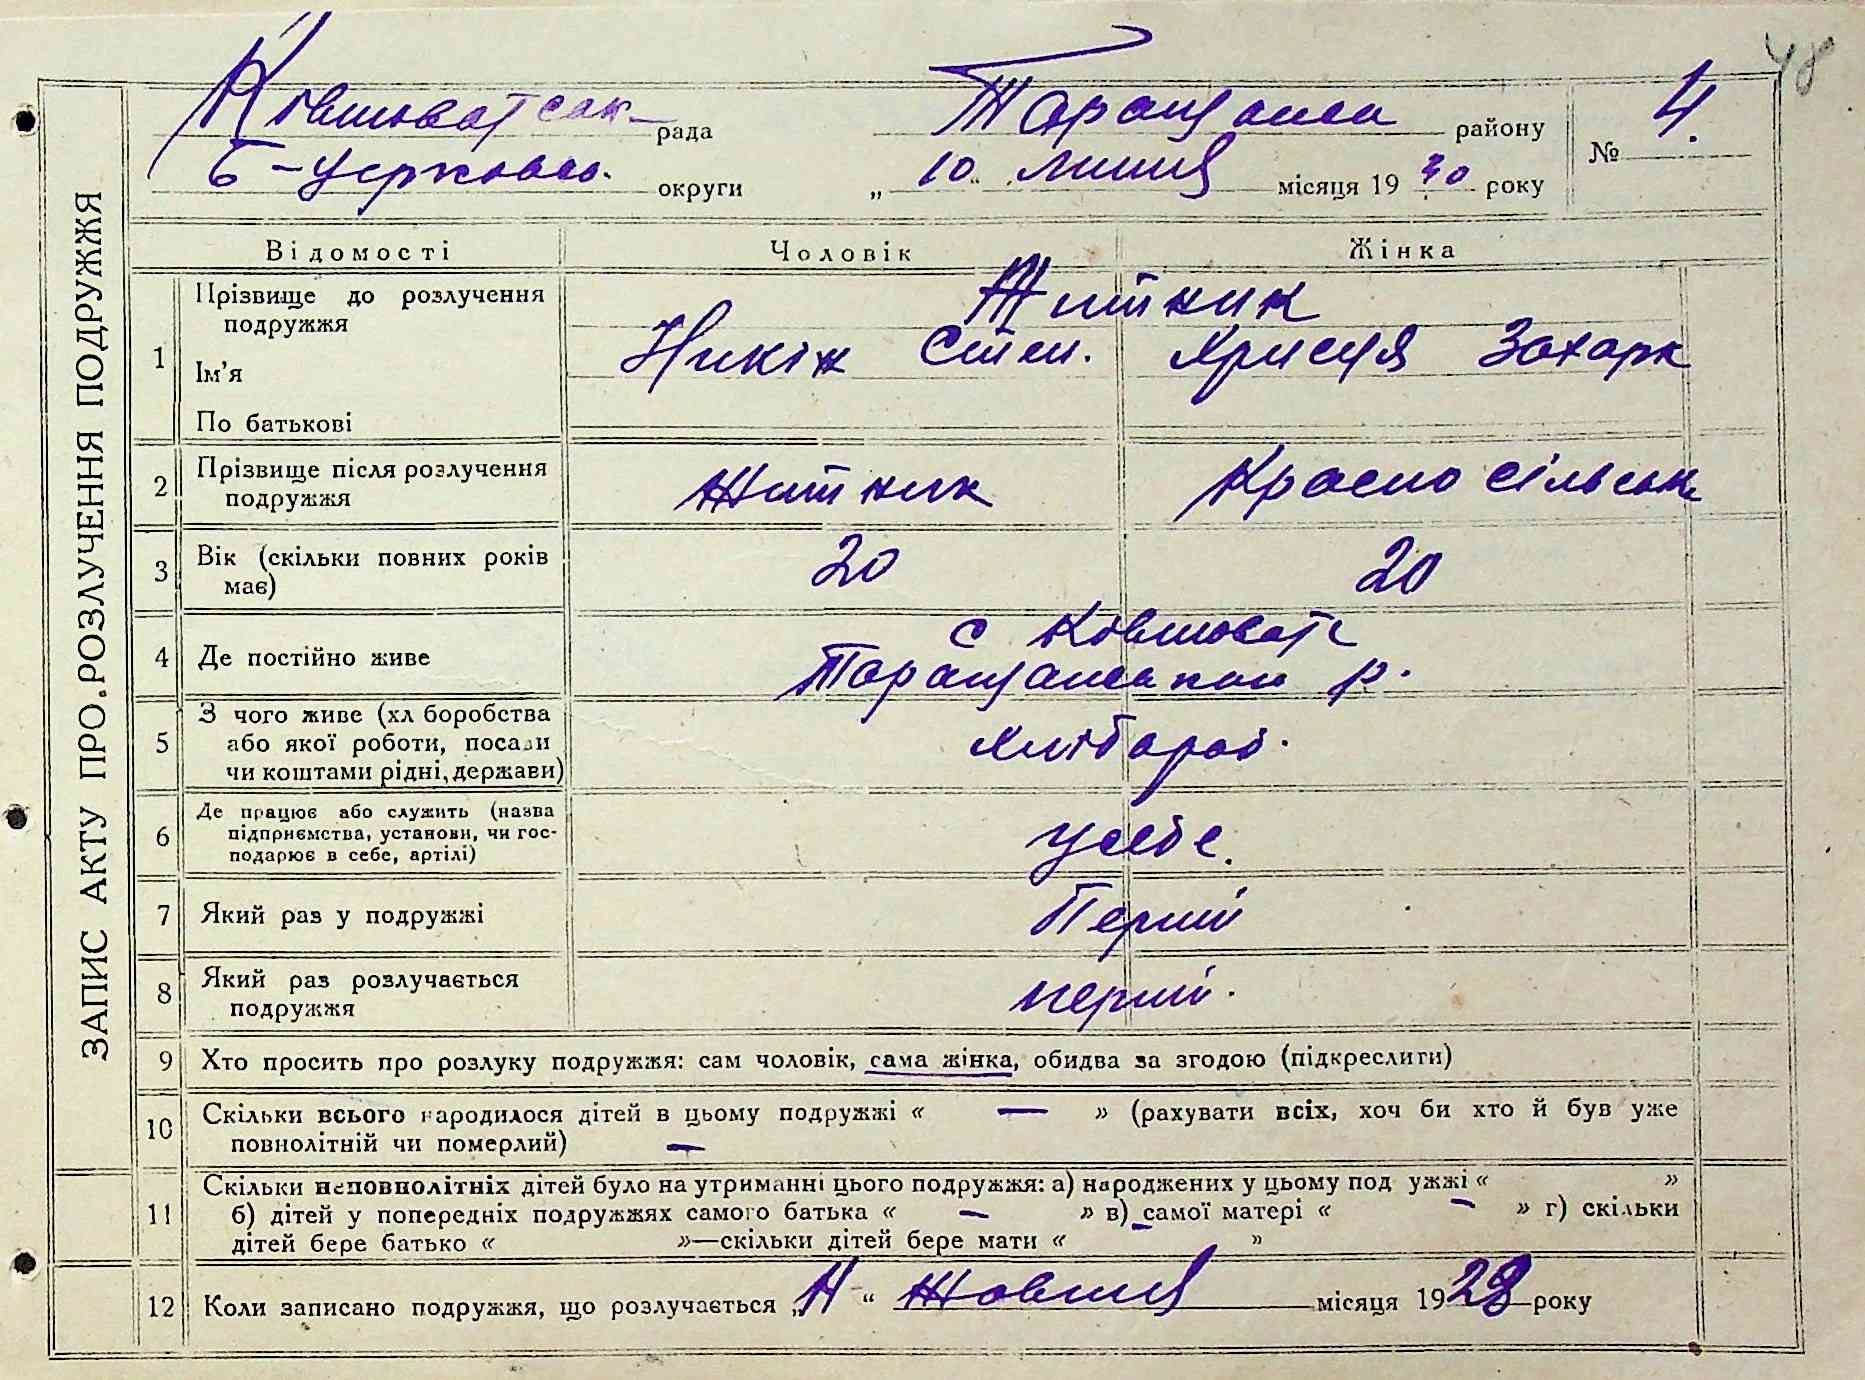 48
Ковшоватськ рада Таращанськ району № 4.
Б-Церковсь. округи „10“ липня місяця 1930 року
ЗАПИС АКТУ ПРО РОЗЛУЧЕННЯ ПОДРУЖЖЯ
Відомості Чоловік Жінка
1 Прізвище до розлучення подружжя Житник
Ім’я Степ. Хрися Захарк
По батькові
2 Прізвище після розлучення подружжя Житник Красносільськ
3 Вік (скільки повних років має) 20 20
4 Де постійно живе с Ковшовата
Таращанськои р.
5 З чого живе (хліборобства
або якої роботи, посади хлібороб.
чи коштами рідні, держави)
6 Де працює або служить (назва
підприємства, установи, чи гос- у себе.
подарює в себе, артілі)
7 Який раз у подружжі Перший
8 Який раз розлучається подружжя перший.
9 Хто просить про розлуку подружжя: сам чоловік, сама жінка, обидва за згодою (підкреслити)
10 Скільки всього народилося дітей в цьому подружжі « — » (рахувати всіх, хоч би хто й був уже
повнолітній чи померлий) —
11 Скільки неповнолітніх дітей було на утриманні цього подружжя: а) народжених у цьому подружжі « »
б) дітей у попередніх подружжях самого батька « — » в) самої матері « — » г) скільки
дітей бере батько « »—скільки дітей бере мати « »
12 Коли записано подружжя, що розлучається „ “ Жовтня місяця 1928 року